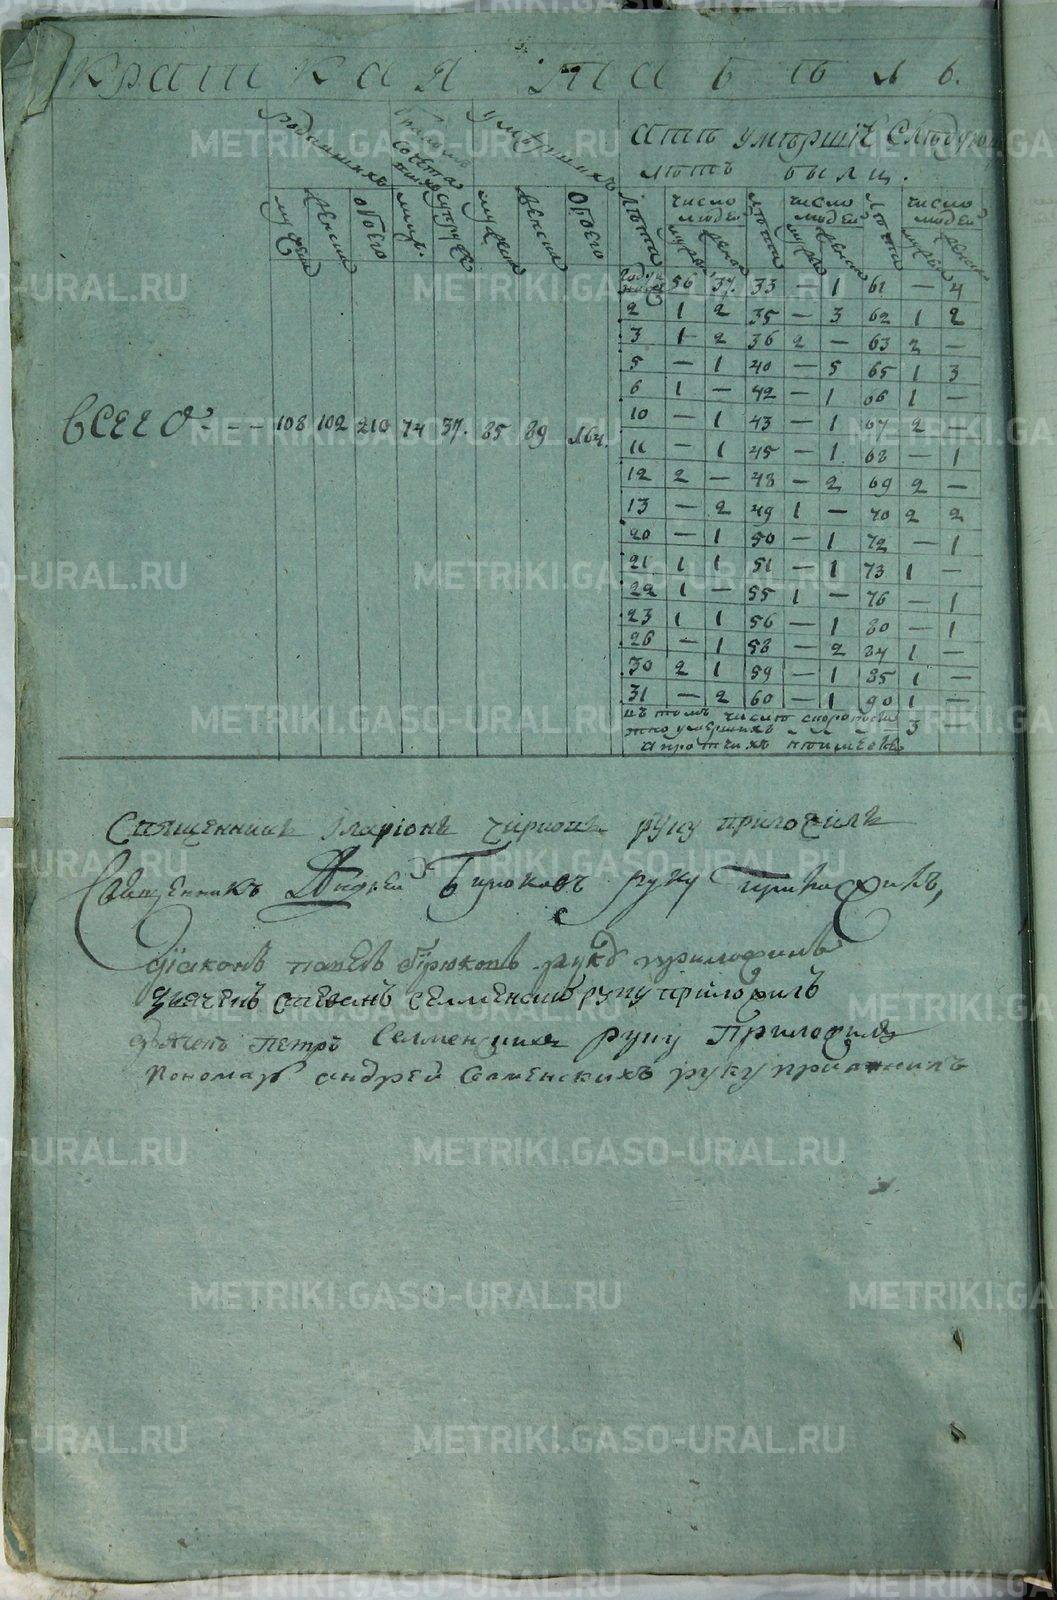 Краткая табѣль.
родившихъ умершихъ
Лѣта умершiх Слѣдую
лѣтъ былi.
мужеск женска обоего женска обоего
лѣта число людей лѣта число людей лѣта число людей
56 37. 33 — 1 61 — 4
2 1 2 35 — 3 62 1 2
3 1 2 36 2 — 63 2 —
5 — 1 40 — 5 65 1 3
6 1 — 42 — 1 66 1 —
10 — 1 43 — 1 67 2 —
11 — 1 45 — 1 68 — 1
12 2 — 48 — 2 69 2 —
13 — 2 49 1 — 70 2 2
20 — 1 50 — 1 72 — 1
21 1 1 51 — 1 73 1 —
22 1 — 55 1 — 76 — 1
23 1 1 56 — 1 80 — 1
26 — 1 58 — 2 84 1 —
30 2 1 59 — 1 85 1 —
31 — 2 60 — 1 90 1 —
всего - - - 108 102 210 74 37. 85 89
въ томъ числѣ скоропости
жно умершихъ - - - - 3
а протчихъ
Священникъ Iларiонъ руку приложилъ
Священникъ Андрей Бирюковъ руку приложилъ,
дiаконъ павелъ бiрюковъ руку приложилъ
дьячекъ стефанъ селменскiй руку приложилъ
дьячекъ Петръ Селменскихъ руку Приложилъ
Пономарь андрей Селменскихъ руку приложилъ
METRIKI.GASO-URAL.RU